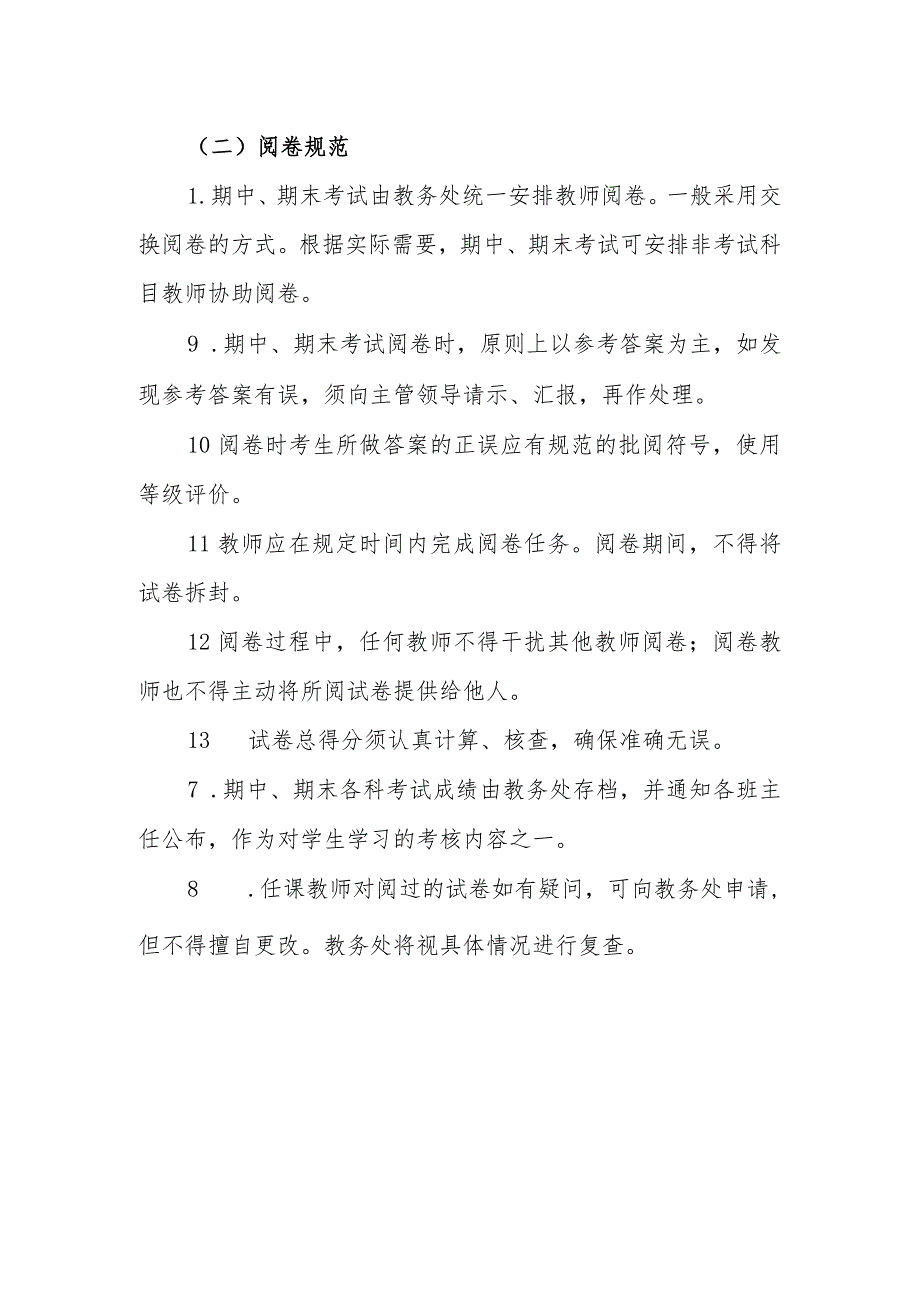 （二）阅卷规范
1.期中、期末考试由教务处统一安排教师阅卷。一般采用交
换阅卷的方式。根据实际需要，期中、期末考试可安排非考试科
目教师协助阅卷。
9 .期中、期末考试阅卷时，原则上以参考答案为主，如发
现参考答案有误，须向主管领导请示、汇报，再作处理。
10 阅卷时考生所做答案的正误应有规范的批阅符号，使用
等级评价。
11 教师应在规定时间内完成阅卷任务。阅卷期间，不得将
试卷拆封。
12 阅卷过程中，任何教师不得干扰其他教师阅卷；阅卷教
师也不得主动将所阅试卷提供给他人。
13 试卷总得分须认真计算、核查，确保准确无误。
7 .期中、期末各科考试成绩由教务处存档，并通知各班主
任公布，作为对学生学习的考核内容之一。
8 .任课教师对阅过的试卷如有疑问，可向教务处申请,
但不得擅自更改。教务处将视具体情况进行复查。